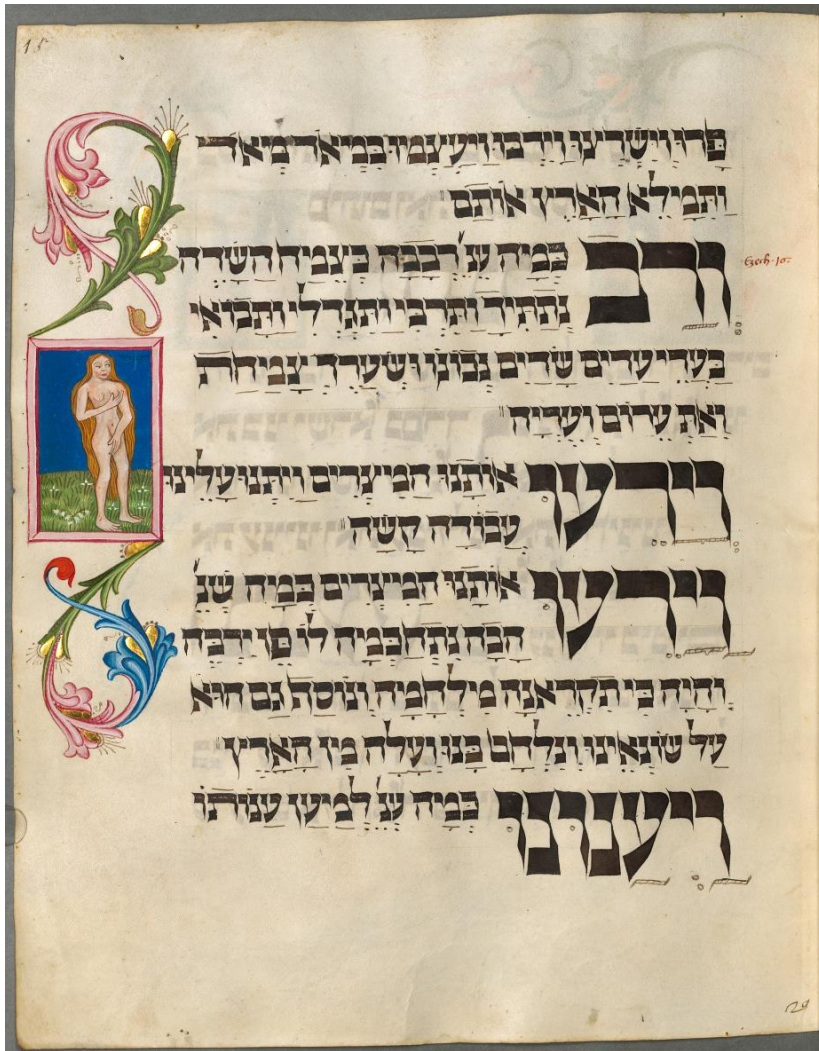 15
פרו וישרצו וירבו ויעצמו במאד מאד
ותמלא הארץ אותם
ורב כמה שנ' רבבה כצמח השדה
Ezech. 16.
נתתיך ותרבי ותגדלי ותבואי
בעדי עדים שדים נכונו ושערך צמח
ואת ערום ועריה
וירעו אותנו המצרים ויתנו עלינו
עבודה קשה
וירעו אותנו המצרים כמה שנ'
הבה נתחכמה לו פן ירבה
והיה כי תקראנה מלחמה ונוסף גם הוא
על שונאינו ונלחם בנו ועלה מן הארץ
ויענונו כמה שנ' למען ענותו